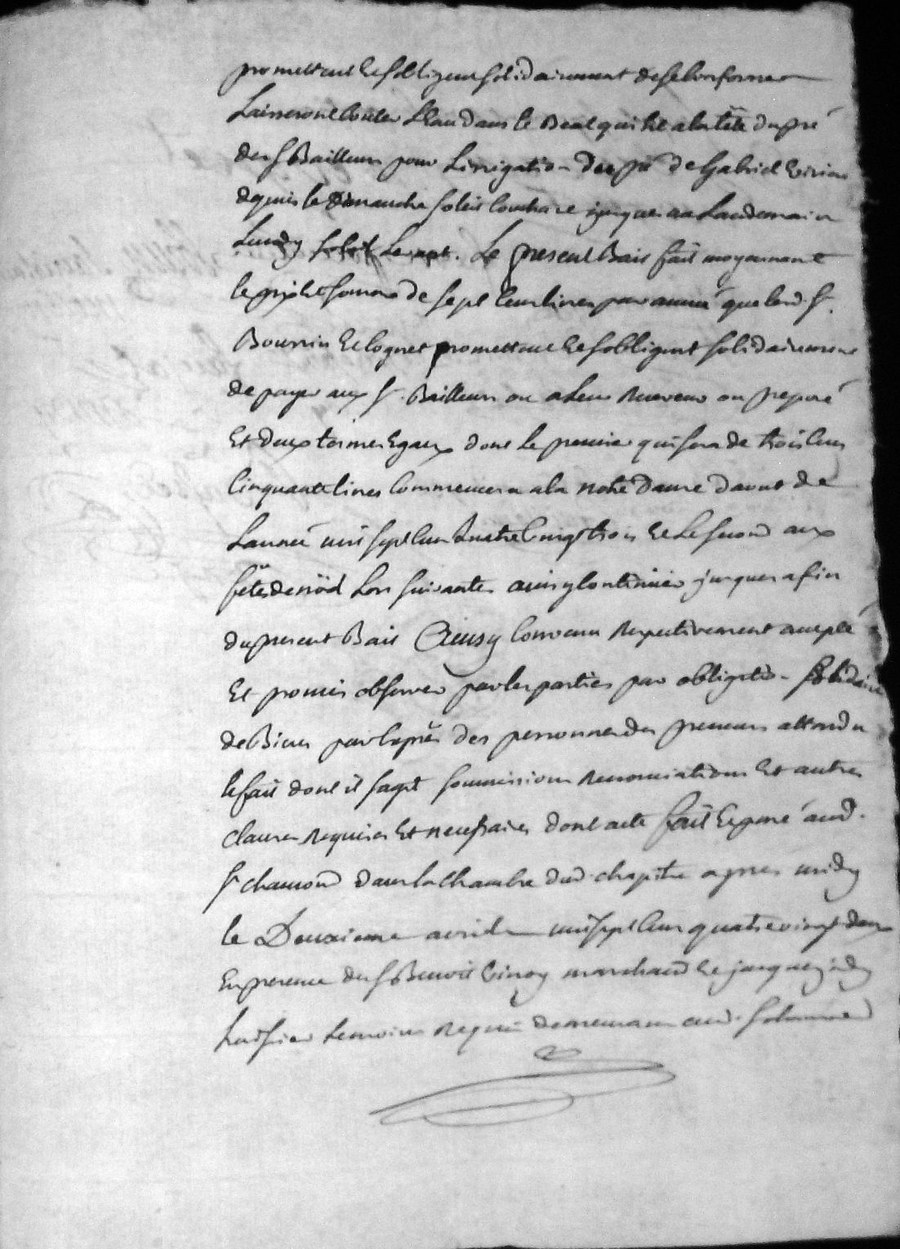 promettent et s'obligent solidairement de se conformer
Laisseront couler L'eau dans le Béal qui est a la tête du pré
des Srs Bailleurs pour L'irrigation du pré de Gabriel
depuis le dimanche soleil couchant jusques au Lendemain
Lundy soleil Levant. Le present Bail fait moyennant
le prix et somme de sept cent livres par année que led. Sr.
Bourrin et Cognet promettent et s'obligent solidairement
de payer aux Srs. Bailleurs ou a Leur Receveur ou preposé
Et deux termes Egaux dont Le premier qui sera de trois cent
Cinquante livres Commencera a la notre dame d'aout de
L'année mil sept cent quatre vingt trois et Le second aux
fêtes de noël Lors suivantes ainsy continuer jusques a fin
du present Bail Ainsy Convenu Respectivement accepté
Et promis observer par les parties par obligation solidaire
de Biens par exprès des personnes des preneurs attendu
le fait dont il s'agit soumissions Renonciations Et autres
clauses Requises Et necessaires dont acte fait Et passé aud.
St chamond dans la Chambre dud. chapitre apres midy
le Douzieme avril mil sept cent quatre vingt deux
En presence de Sr Benoit marchand et jacques
huissier temoins Requis demeurant aud. St chamond